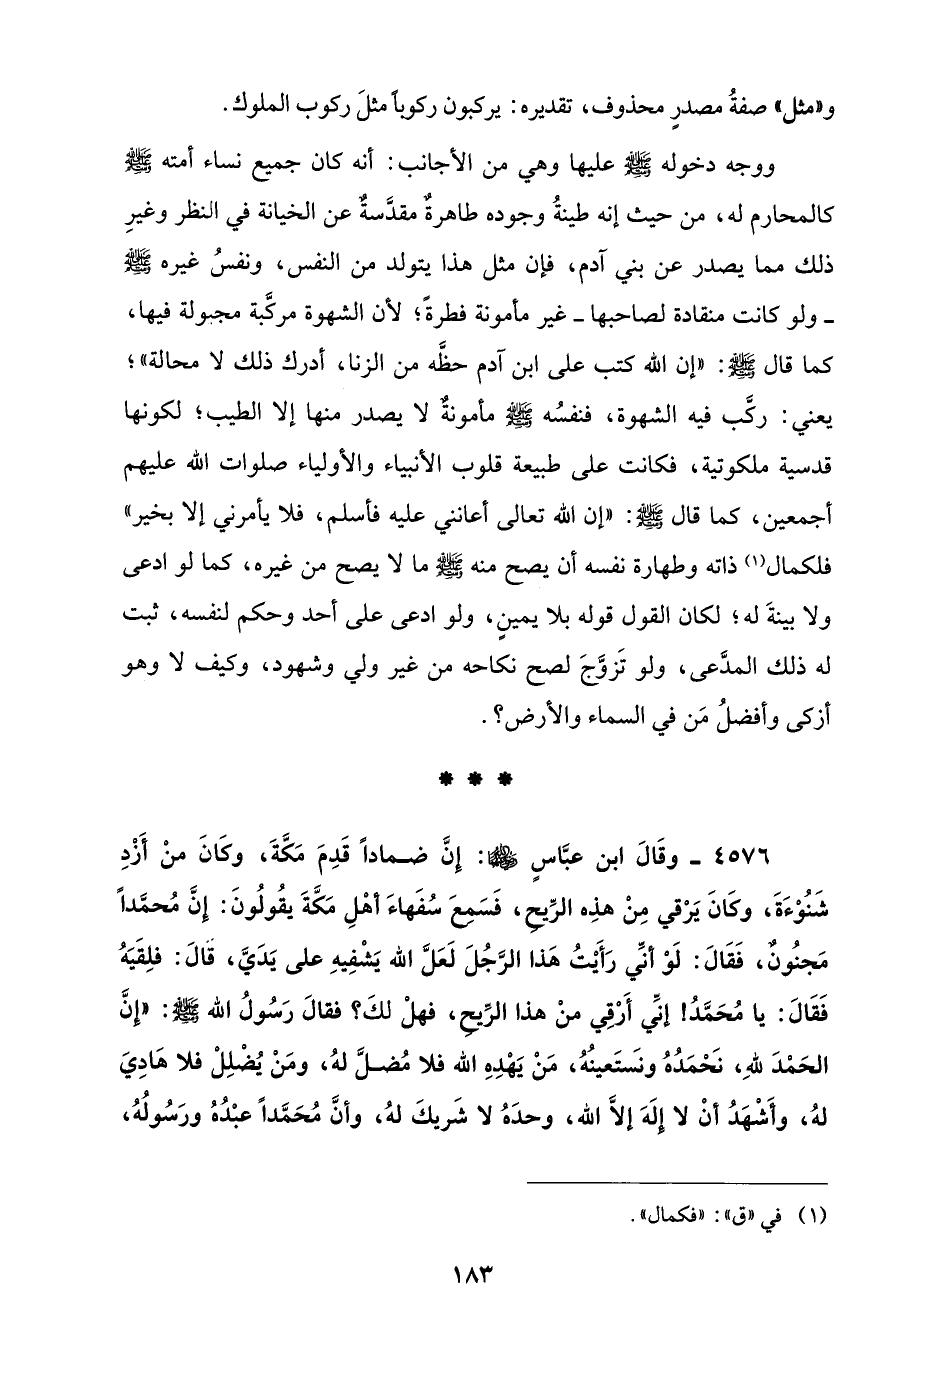 و«مثل» صفةُ مصدرٍ محذوف، تقديره: يركبون ركوباً مثلَ ركوب الملوك.
ووجه دخوله ﷺ عليها وهي من الأجانب: أنه كان جميع نساء أمته ﷺ
كالمحارم له، من حيث إنه طينةُ وجوده طاهرةٌ مقدَّسةٌ عن الخيانة في النظر وغيرِ
ذلك مما يصدر عن بني آدم، فإن مثل هذا يتولد من النفس، ونفسُ غيره ﷺ
ـ ولو كانت منقادة لصاحبها ـ غير مأمونة فطرةً؛ لأن الشهوة مركَّبة مجبولة فيها،
كما قال ﷺ: «إن الله كتب على ابن آدم حظَّه من الزنا، أدرك ذلك لا محالة»؛
يعني: ركَّب فيه الشهوة، فنفسُه ﷺ مأمونةٌ لا يصدر منها إلا الطيب؛ لكونها
قدسية ملكوتية، فكانت على طبيعة قلوب الأنبياء والأولياء صلوات الله عليهم
أجمعين، كما قال ﷺ: «إن الله تعالى أعانني عليه فأسلم، فلا يأمرني إلا بخير»
فلكمال(١) ذاته وطهارة نفسه أن يصح منه ﷺ ما لا يصح من غيره، كما لو ادعى
ولا بينةَ له؛ لكان القول قوله بلا يمينٍ، ولو ادعى على أحد وحكم لنفسه، ثبت
له ذلك المدَّعى، ولو تَزوَّجَ لصح نكاحه من غير ولي وشهود، وكيف لا وهو
أزكى وأفضلُ مَن في السماء والأرض؟.
* * *
٤٥٧٦ ـ وقَالَ ابن عبَّاسٍ ﵄: إنَّ ضماداً قَدِمَ مَكَّةَ، وكَانَ منْ أَزْدِ
شَنُوْءَةَ، وكَانَ يَرْقي مِنْ هذِه الرِّيحِ، فَسَمِعَ سُفَهاءَ أهْلِ مَكَّةَ يقُولُونَ: إنَّ مُحمَّداً
مَجنُونٌ، فَقَالَ: لَوْ أنِّي رَأيْتُ هَذا الرَّجُلَ لَعَلَّ الله يَشْفِيهِ على يَدَيَّ، قَالَ: فلِقيَهُ
فَقَالَ: يا مُحَمَّدُ! إنِّي أَرْقِي منْ هذا الرِّيحِ، فهلْ لكَ؟ فقالَ رَسُولُ الله ﷺ: «إنَّ
الحَمْدَ للهِ، نَحْمَدُهُ ونَستَعينُهُ، مَنْ يَهْدِهِ الله فلا مُضلَّ لهُ، ومَنْ يُضْلِلْ فلا هَادِيَ
لهُ، وأَشْهَدُ أنْ لا إلَهَ إلاَّ الله، وحدَهُ لا شَريكَ لهُ، وأنَّ مُحَمَّداً عبْدُهُ ورَسُولُهُ،
(١) في «ق»: «فكمال».
١٨٣